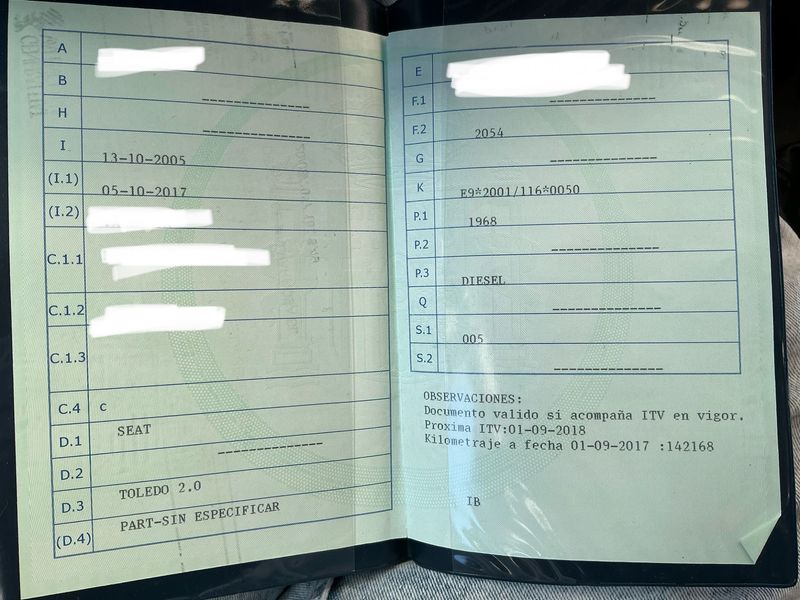 A
B
H
I
13-10-2005
(I.1)
05-10-2017
(I.2)
C.1.1
C.1.2
C.1.3
C.4 c
SEAT
D.1
D.2
TOLEDO 2.0
D.3
PART-SIN ESPECIFICAR
(D.4)
E
F.1
F.2
2054
G
K
E9*2001/116*0050
P.1
1968
P.2
P.3
DIESEL
Q
S.1
005
S.2
OBSERVACIONES:
Documento valido si acompaña ITV en vigor.
Proxima ITV:01-09-2018
Kilometraje a fecha 01-09-2017 :142168
IB